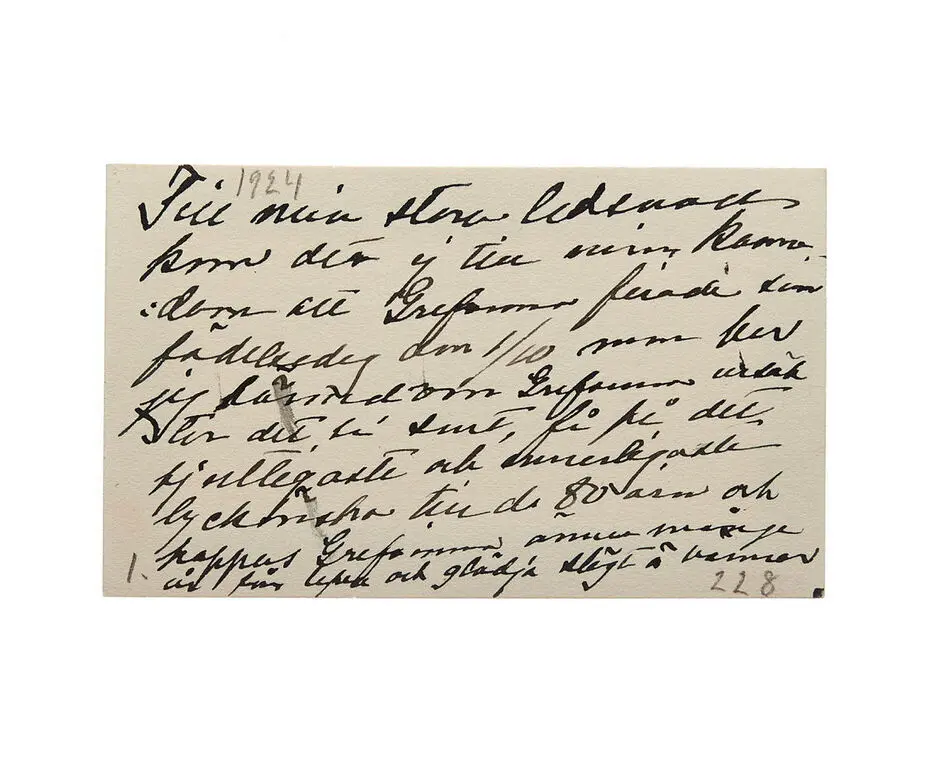 1924
Till min stora ledsnad
kom det ej till min känne-
:dom att Grefvinnan firade sin
födelsedag den 1/10 men ber
jag Grefvinnan ursäk
det så sent, få på det
hjertligaste och innerligaste
lyckönska till de 80 åren och
hoppas Grefvinnan ännu många
år får lefva och glädja slägt å vänner
1.
228